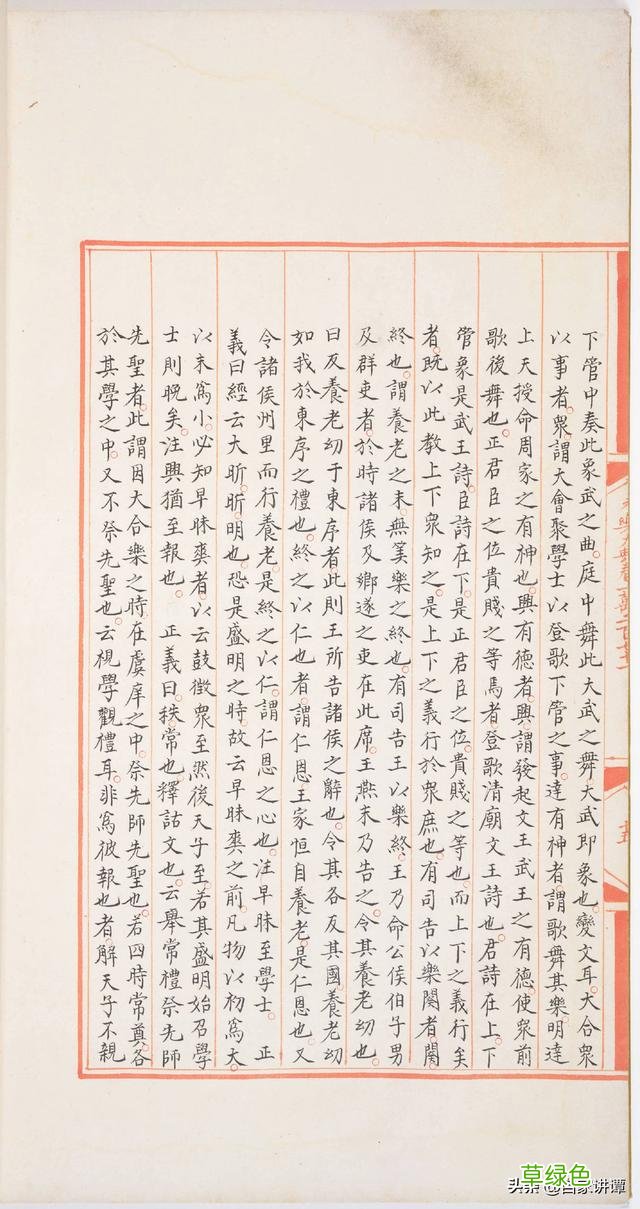 下管中奏此象武之曲庭中舞此大武之舞大武即象也變文耳大合衆
以事者衆謂大會聚學士以登歌下管之事達有神者謂歌舞其樂明達
上天授命周家之有神也興有德者興謂發起文王武王之有德使衆前
歌後舞也正君臣之位貴賤之等焉者登歌清廟文王詩也君詩在上下
管象是武王詩臣詩在下是正君臣之位貴賤之等也而上下之義行矣
者旣以此教上下衆知之是上下之義行於衆庶也有司告以樂闋者闋
終也謂養老之末無筭樂之終也有司告王以樂終王乃命公侯伯子男
及群吏者於時諸侯及鄉遂之吏在此席王燕末乃告之令其養老幼也
曰反養老幼于東序者此則王所告諸侯之辭也令其各反其國養老幼
如我於東序之禮也終之以仁也者謂仁恩王家恒自養老是仁恩也又
令諸侯州里而行養老是終之以仁謂仁恩之心也注早昧至學士 正
義曰經云大昕昕明也恐是盛明之時故云早昧爽之前凡物以初爲大
以末爲小必知早昧爽者以云鼓徵衆至然後天子至若其盛明始召學
士則晚矣注興猶至報也 正義曰秩常也釋詁文也云舉常禮祭先師
先聖者此謂因大合樂之時在虞庠之中祭先師先聖也若四時常奠各
於其學之中又不祭先聖也云視學觀禮耳非爲彼報也者解天子不親
草绿色
头条 @百家讲谭